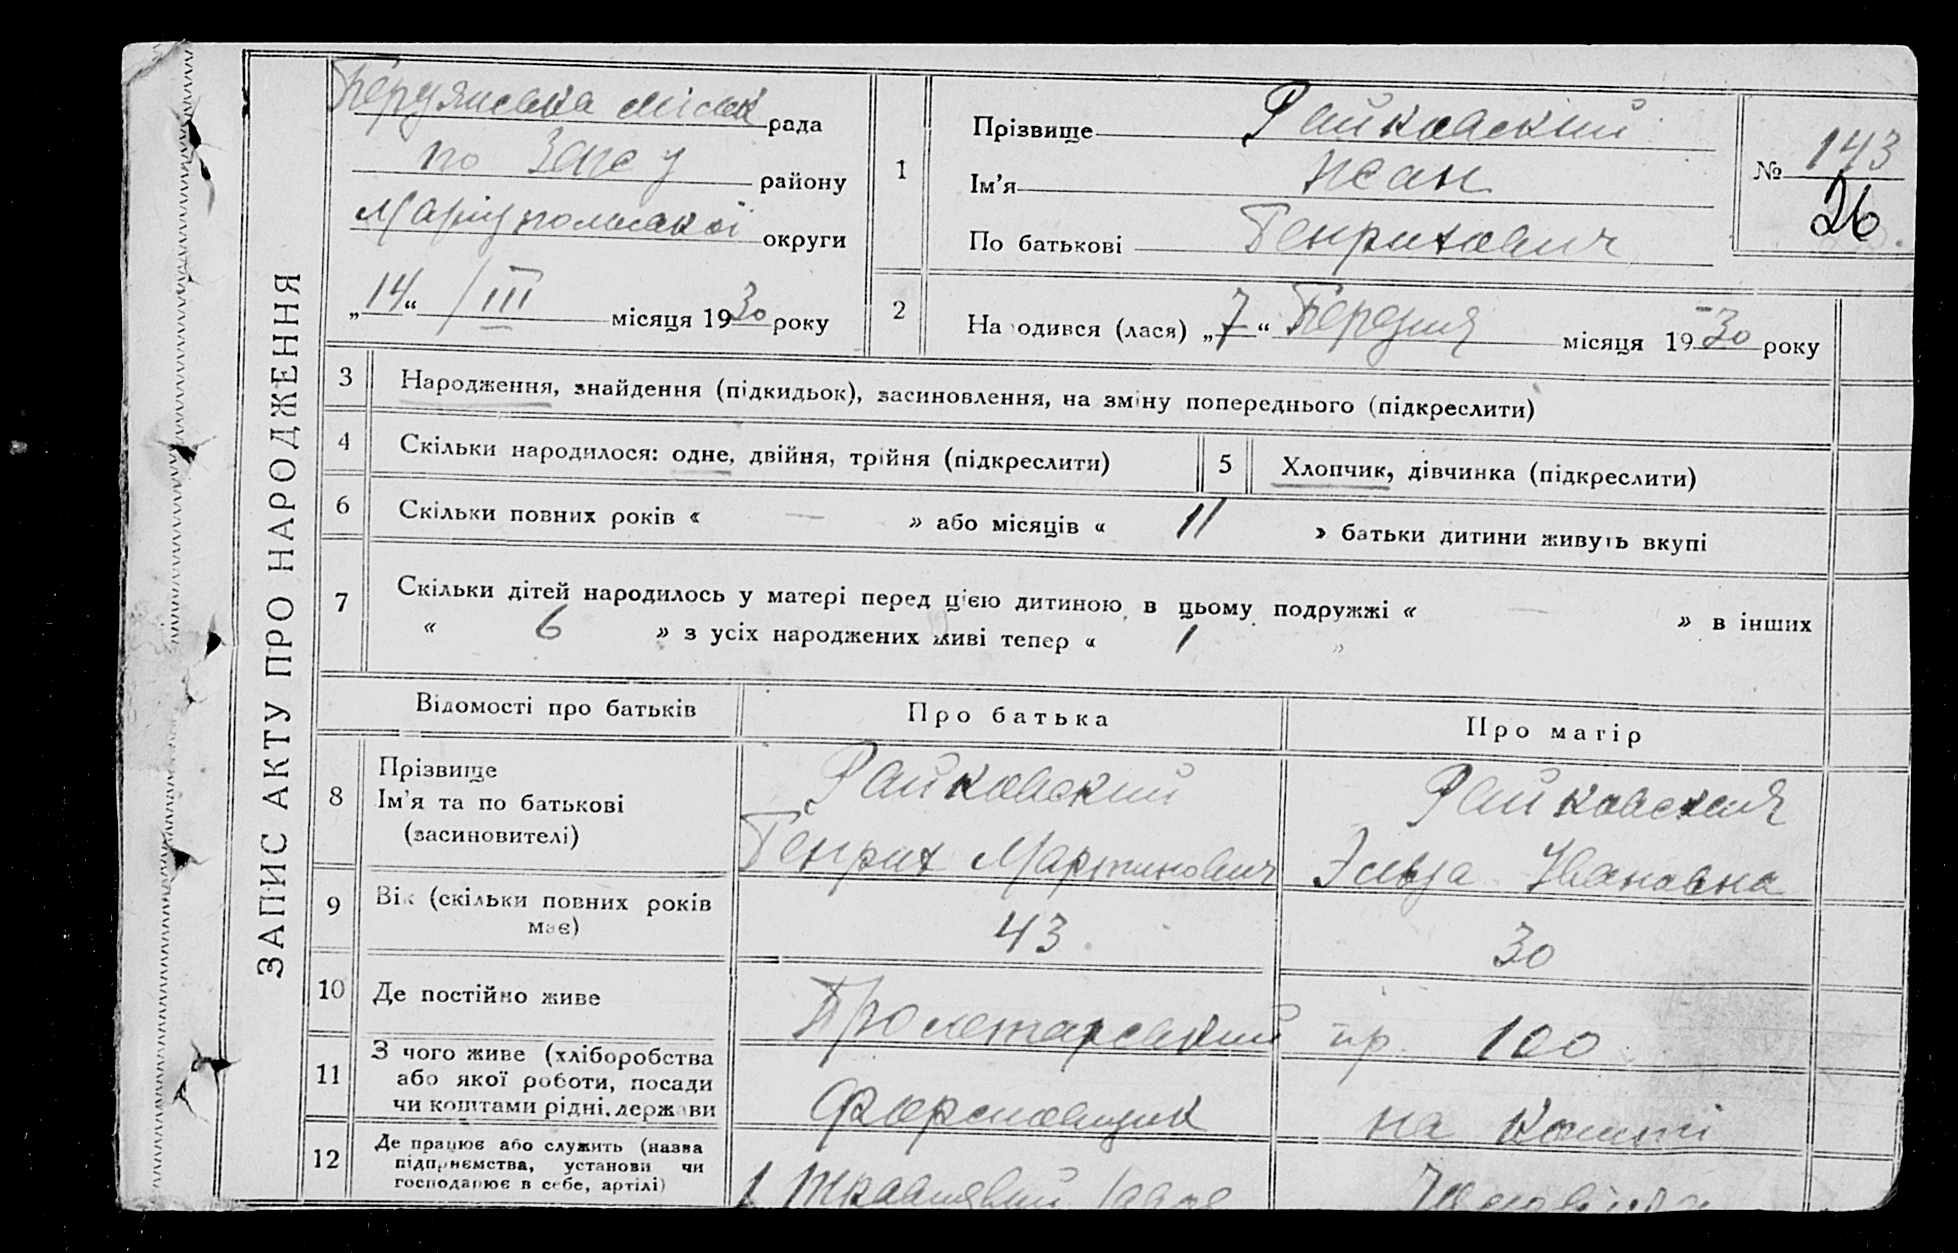 ЗАПИС АКТУ ПРО НАРОДЖЕННЯ
Бердянська міськ рада
по Загсу району
Маріупольської округи
„14“ / III місяця 1930 року
1 Прізвище Райковский
Ім’я Жан
По батькові Генрихович
№ 143
26
2 На одився (лася) „7“ Березня місяця 1930 року
3 Народження, знайдення (підкидьок), засиновлення, на зміну попереднього (підкреслити)
4 Скільки народилося: одне, двійня, трійня (підкреслити)
5 Хлопчик, дівчинка (підкреслити)
6 Скільки повних років « — » або місяців « 11 » батьки дитини живуть вкупі
7 Скільки дітей народилось у матері перед цією дитиною в цьому подружжі « — » в інших
« 6 » з усіх народжених живі тепер « 1 »
Відомості про батьків Про батька Про матір
8 Прізвище
Ім’я та по батькові
(засиновителі)
Райковский
Генрих Мартинович
Райковская
Эльза Ивановна
9 Вік (скільки повних років
має)
43 30
10 Де постійно живе Пролетарский пр 100
11 З чого живе (хліборобства
або якої роботи, посади
чи коштами рідні, держави
Формовщик на кошті
12 Де працює або служить (назва
підприємства, установи чи
господарює в себе, артілі)
1
Чоловіка